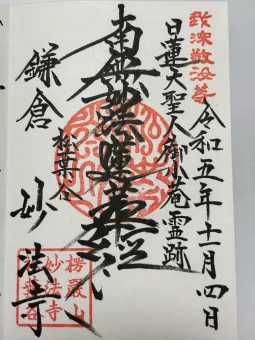 我深敬汝等
令和五年十一月四日
日蓮大聖人御小庵霊跡
南無妙法蓮華経
松葉谷
鎌倉 妙法寺
楞嚴山
妙法寺